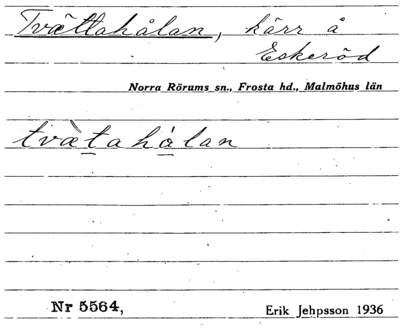 Tvättahålan, kärr å
Eskeröd
Norra Rörums sn., Frosta hd., Malmöhus län
tvätahålan
Nr 5564,
Erik Jehpsson 1936